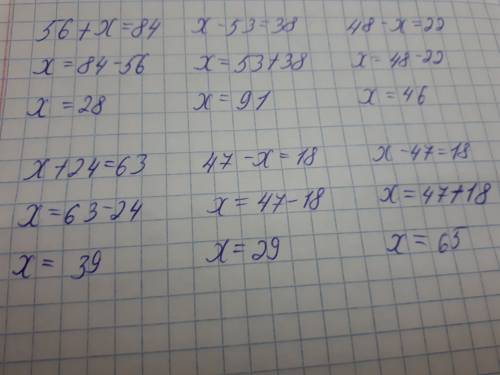 56+x=84 x-53=38 48-x=22
x=84-56 x=53+38 x=48-22
x=28 x=91 x=46
x+24=63 47-x=18 x-47=18
x=63-24 x=47-18 x=47+18
x=39 x=29 x=65